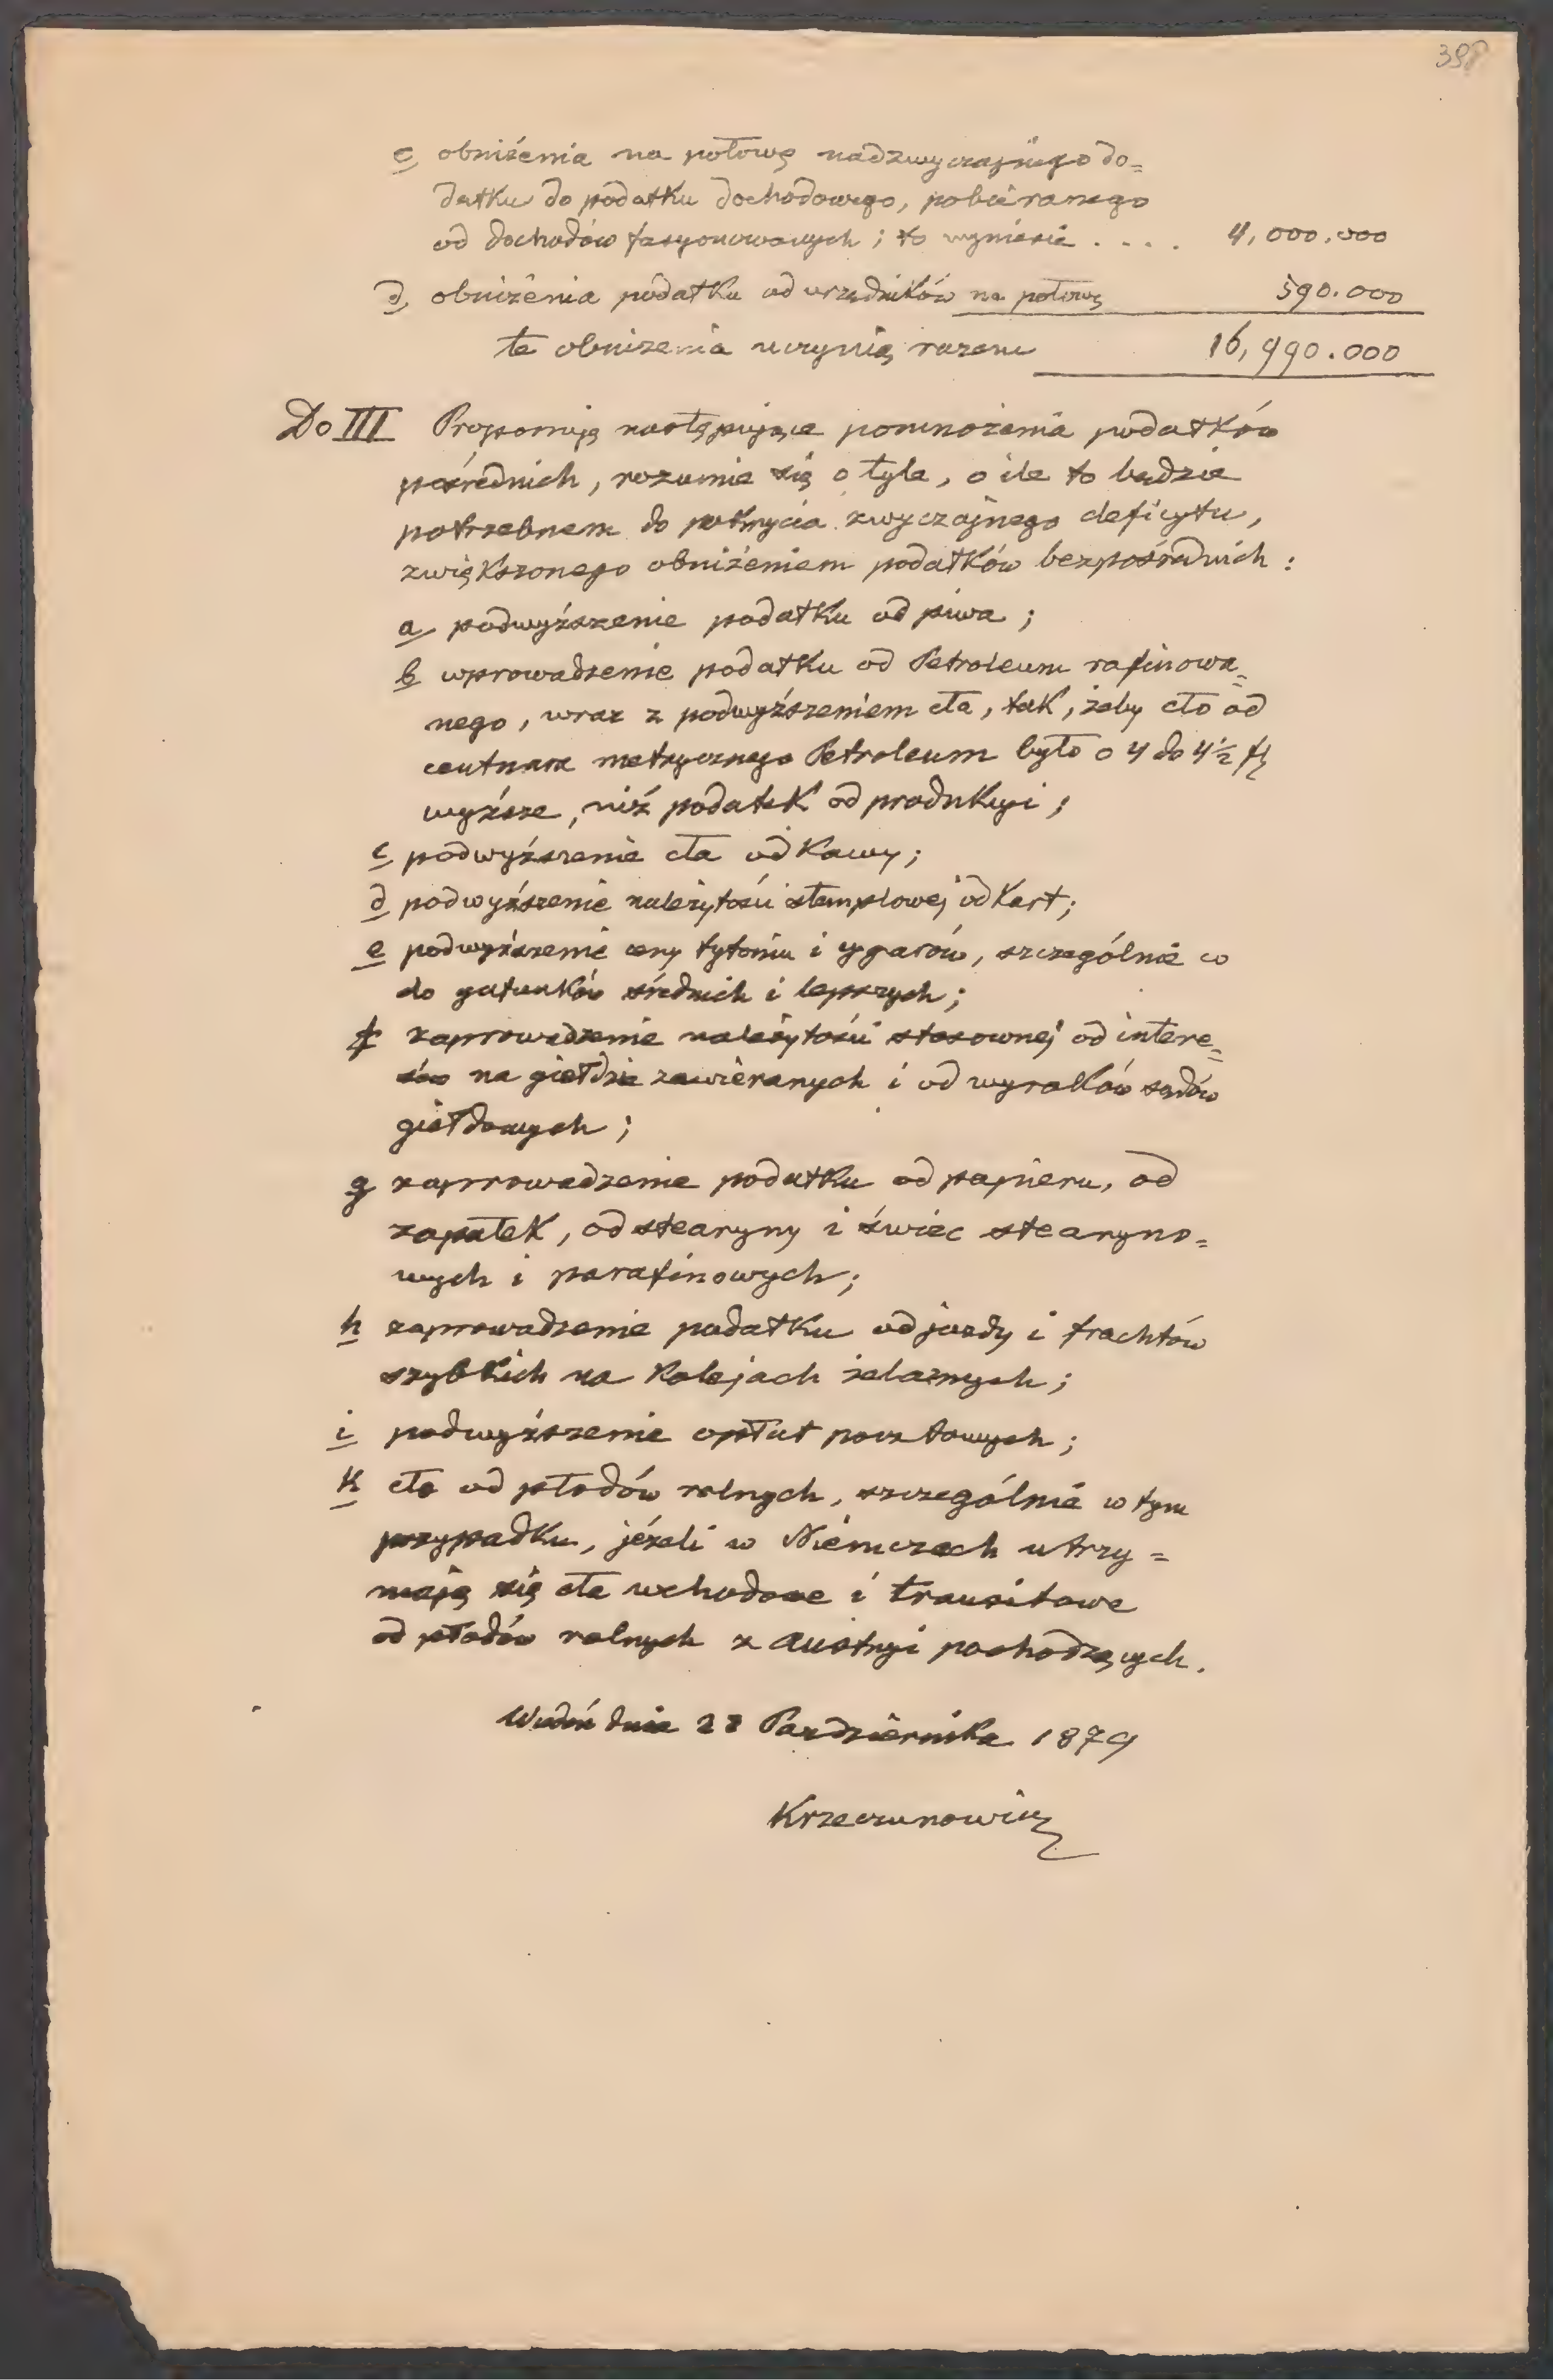 398
c, obniżenia na połowę nadzwyczajnego do=
datku do podatku dochodowego, pobieranego
od dochodów fasyonowanych; to wyniesie . . . . 4,000.000
d, obniżenia podatku od urzędników na połowę 590.000
te obniżenia uczynią razem 16,990.000
Do III Proponuję następujące pomnożenia podatków
pośrednich, rozumie się o tyle, o ile to będzie
potrzebnem do pokrycia zwyczajnego deficytu,
zwiększonego obniżeniem podatków bezpośrednich:
a, podwyższenie podatku od piwa;
b wprowadzenie podatku od Petroleum rafinowa=
nego, wraz z podwyższeniem cła, tak, żeby cło od
centnara metrycznego Petroleum było o 4 do 4½ fl
wyższe, niż podatek od produkcyi;
c podwyższenie cła od Kawy;
d podwyższenie należytości stemplowej od Kart;
e podwyższenie ceny tytoniu i cygarów, szczególnie co
do gatunków średnich i lepszych;
f zaprowadzenie należytości stosownej od intere=
sów na giełdzie zawieranych i od wyroków sądów
giełdowych;
g zaprowadzenie podatku od papieru, od
zapałek, od stearyny i świec stearyno=
wych i parafinowych;
h zaprowadzenie podatku od jazdy i frachtów
szybkich na Kolejach żelaznych;
i podwyższenie opłat pocztowych;
k cło od płodów rolnych, szczególnie w tym
przypadku, jeżeli w Niemczech utrzy=
mają się cła wchodowe i transitowe
od płodów rolnych z Austryi pochodzących.
Wiedeń dnia 28 Października 1879
Krzeczunowicz